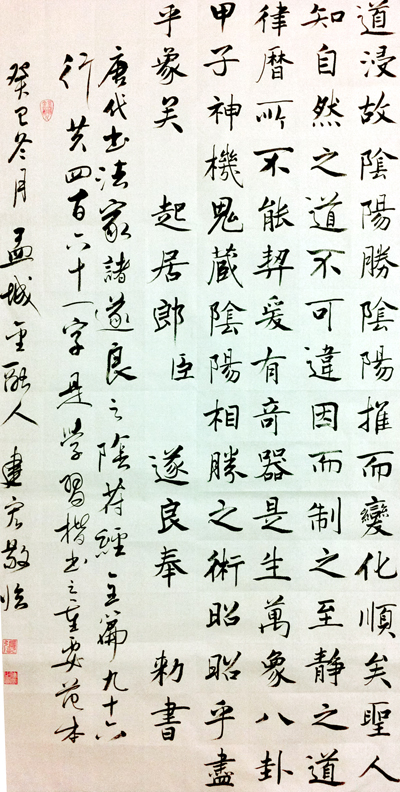 道浸故陰陽勝陰陽推而變化順矣聖人
知自然之道不可違因而制之至靜之道
律曆所不能契爰有奇器是生萬象八卦
甲子神機鬼藏陰陽相勝之術昭昭乎盡
乎象矣 起居郎臣 遂良奉 勅書
唐代书法家諸遂良之陰符經全篇九十六
行共四百六十一字是学習楷书之重要范本
癸巳冬月 孟城金融人 建宏敬临